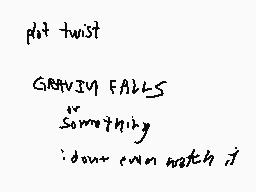 plot twist
GRAVIM FALLS
or
something
i dont even watch it